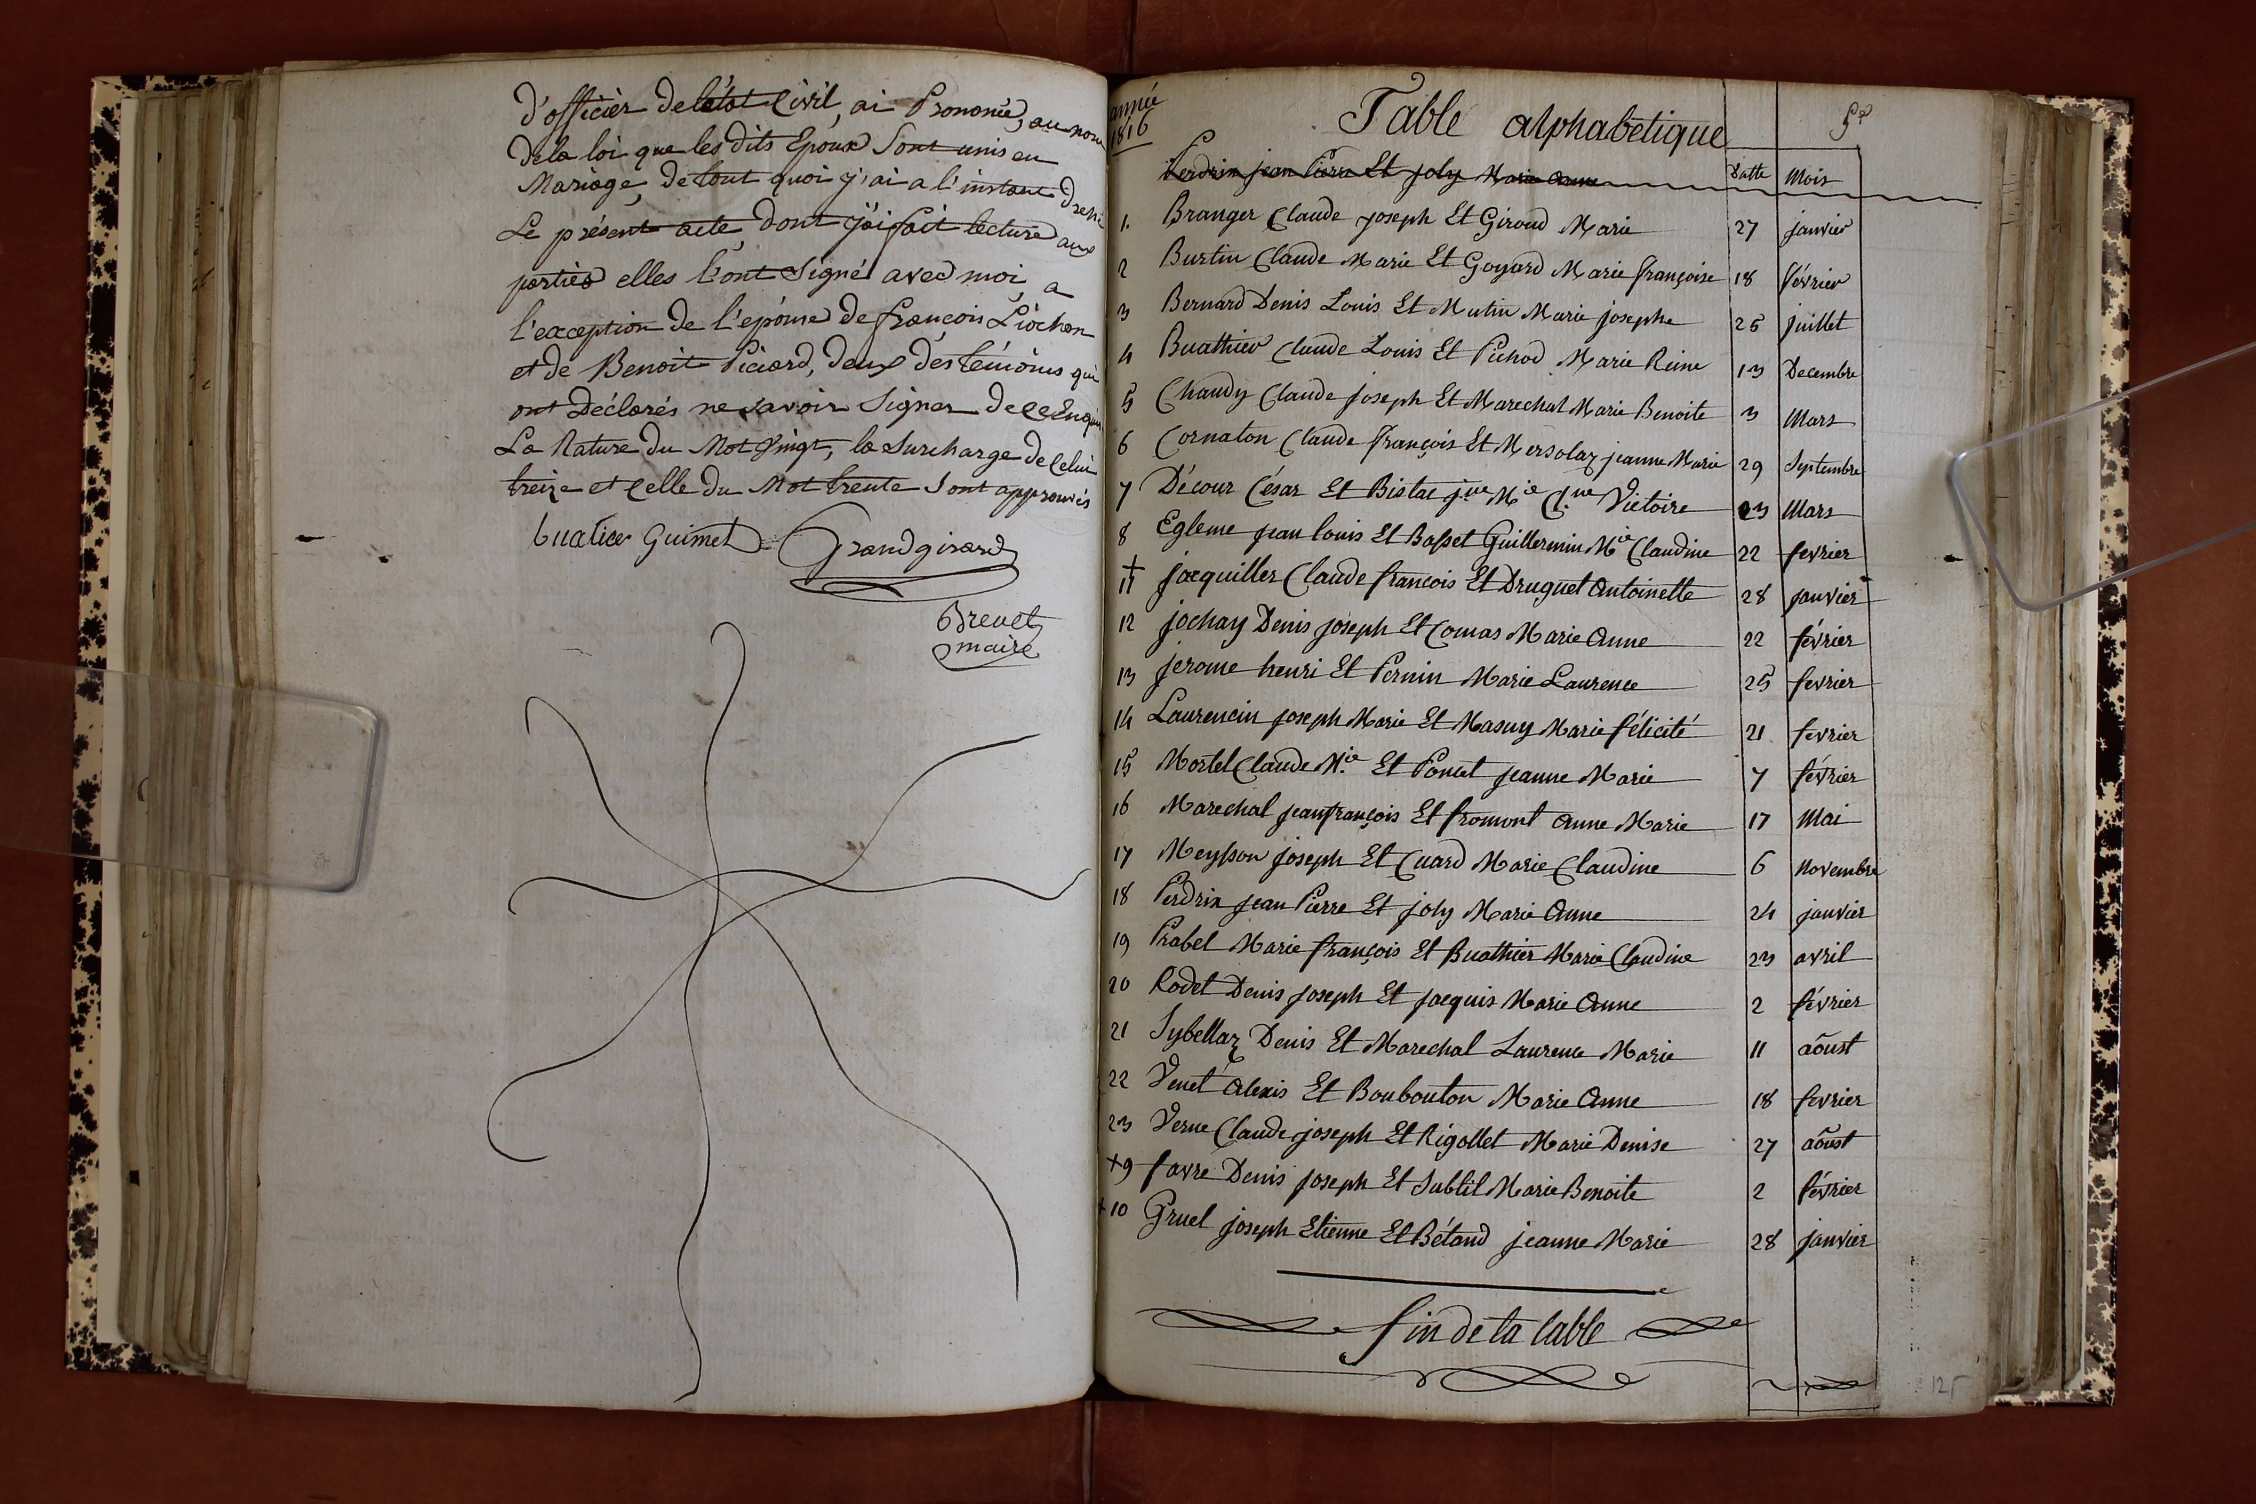 d'officier de létat Civil, ai Prononcé, au nom
De la loi que les dits Epoux Sont unis en
Mariage, de tout quoi j'ai a l'instant
Le présent acte dont j'ai fait lecture aux
parties elles l'ont Signé avec moi, a
l'exception de l'epouse de françois Piochon
et de Benoit Picard, deux des témoins qui
ont Déclarés ne savoir Signer de ce Enquis
La Nature du Mot Vingt, la Surcharge de Celui
treize et Celle du Mot trente Sont approuvés
buatier Guimet Grandgirard
Brevet
maire
année
1816
Table alphabétique
Perdrix jean Pierre Et joly Marie Anne
Datte Mois
1. Branger Claude joseph Et Giroud Marie 27 janvier
2 Burtin Claude Marie Et Goyard Marie françoise 18 février
3 Bernard Denis Louis Et Mutin Marie josephe 25 juillet
4 Buathier Claude Louis Et Pichod Marie Reine 13 Decembre
5 Chaudy Claude joseph Et Marechal Marie Benoite 3 Mars
6 Cornaton Claude françois Et Mersolaz jeanne Marie 29 Septembre
7 Décour César Et Bistac j.ne M.ie Cl.ne Victoire 23 Mars
8 Egleme jean louis Et Basset Guillermin M.ie Claudine 22 fevrier
+
11 jacquiller Claude francois Et Druguet Antoinette 28 janvier
12 jochay Denis joseph Et Comas Marie Anne 22 février
13 jerome henri Et Pernin Marie Laurence 25 fevrier
14 Laurencin joseph Marie Et Masuy Marie félicité 21 fevrier
15 Mortel Claude M.ie Et Poncet jeanne Marie 7 février
16 Marechal jean françois Et fromont Anne Marie 17 Mai
17 Meysson joseph Et Cuard Marie Claudine 6 Novembre
18 Perdrix jean Pierre Et joly Marie Anne 24 janvier
19 Prabel Marie françois Et Buathier Marie Claudine 23 avril
20 Rodet Denis joseph Et jacquis Marie Anne 2 février
21 Sybellaz Denis Et Marechal Laurence Marie 11 aoust
22 Venet Alexis Et Boubouton Marie Anne 18 fevrier
23 Verne Claude joseph Et Rigollet Marie Denise 27 aoust
+9 favre Denis joseph Et Subtil Marie Benoite 2 février
+10 Gruel joseph Etienne Et Bétand jeanne Marie 28 janvier
fin de la table
125